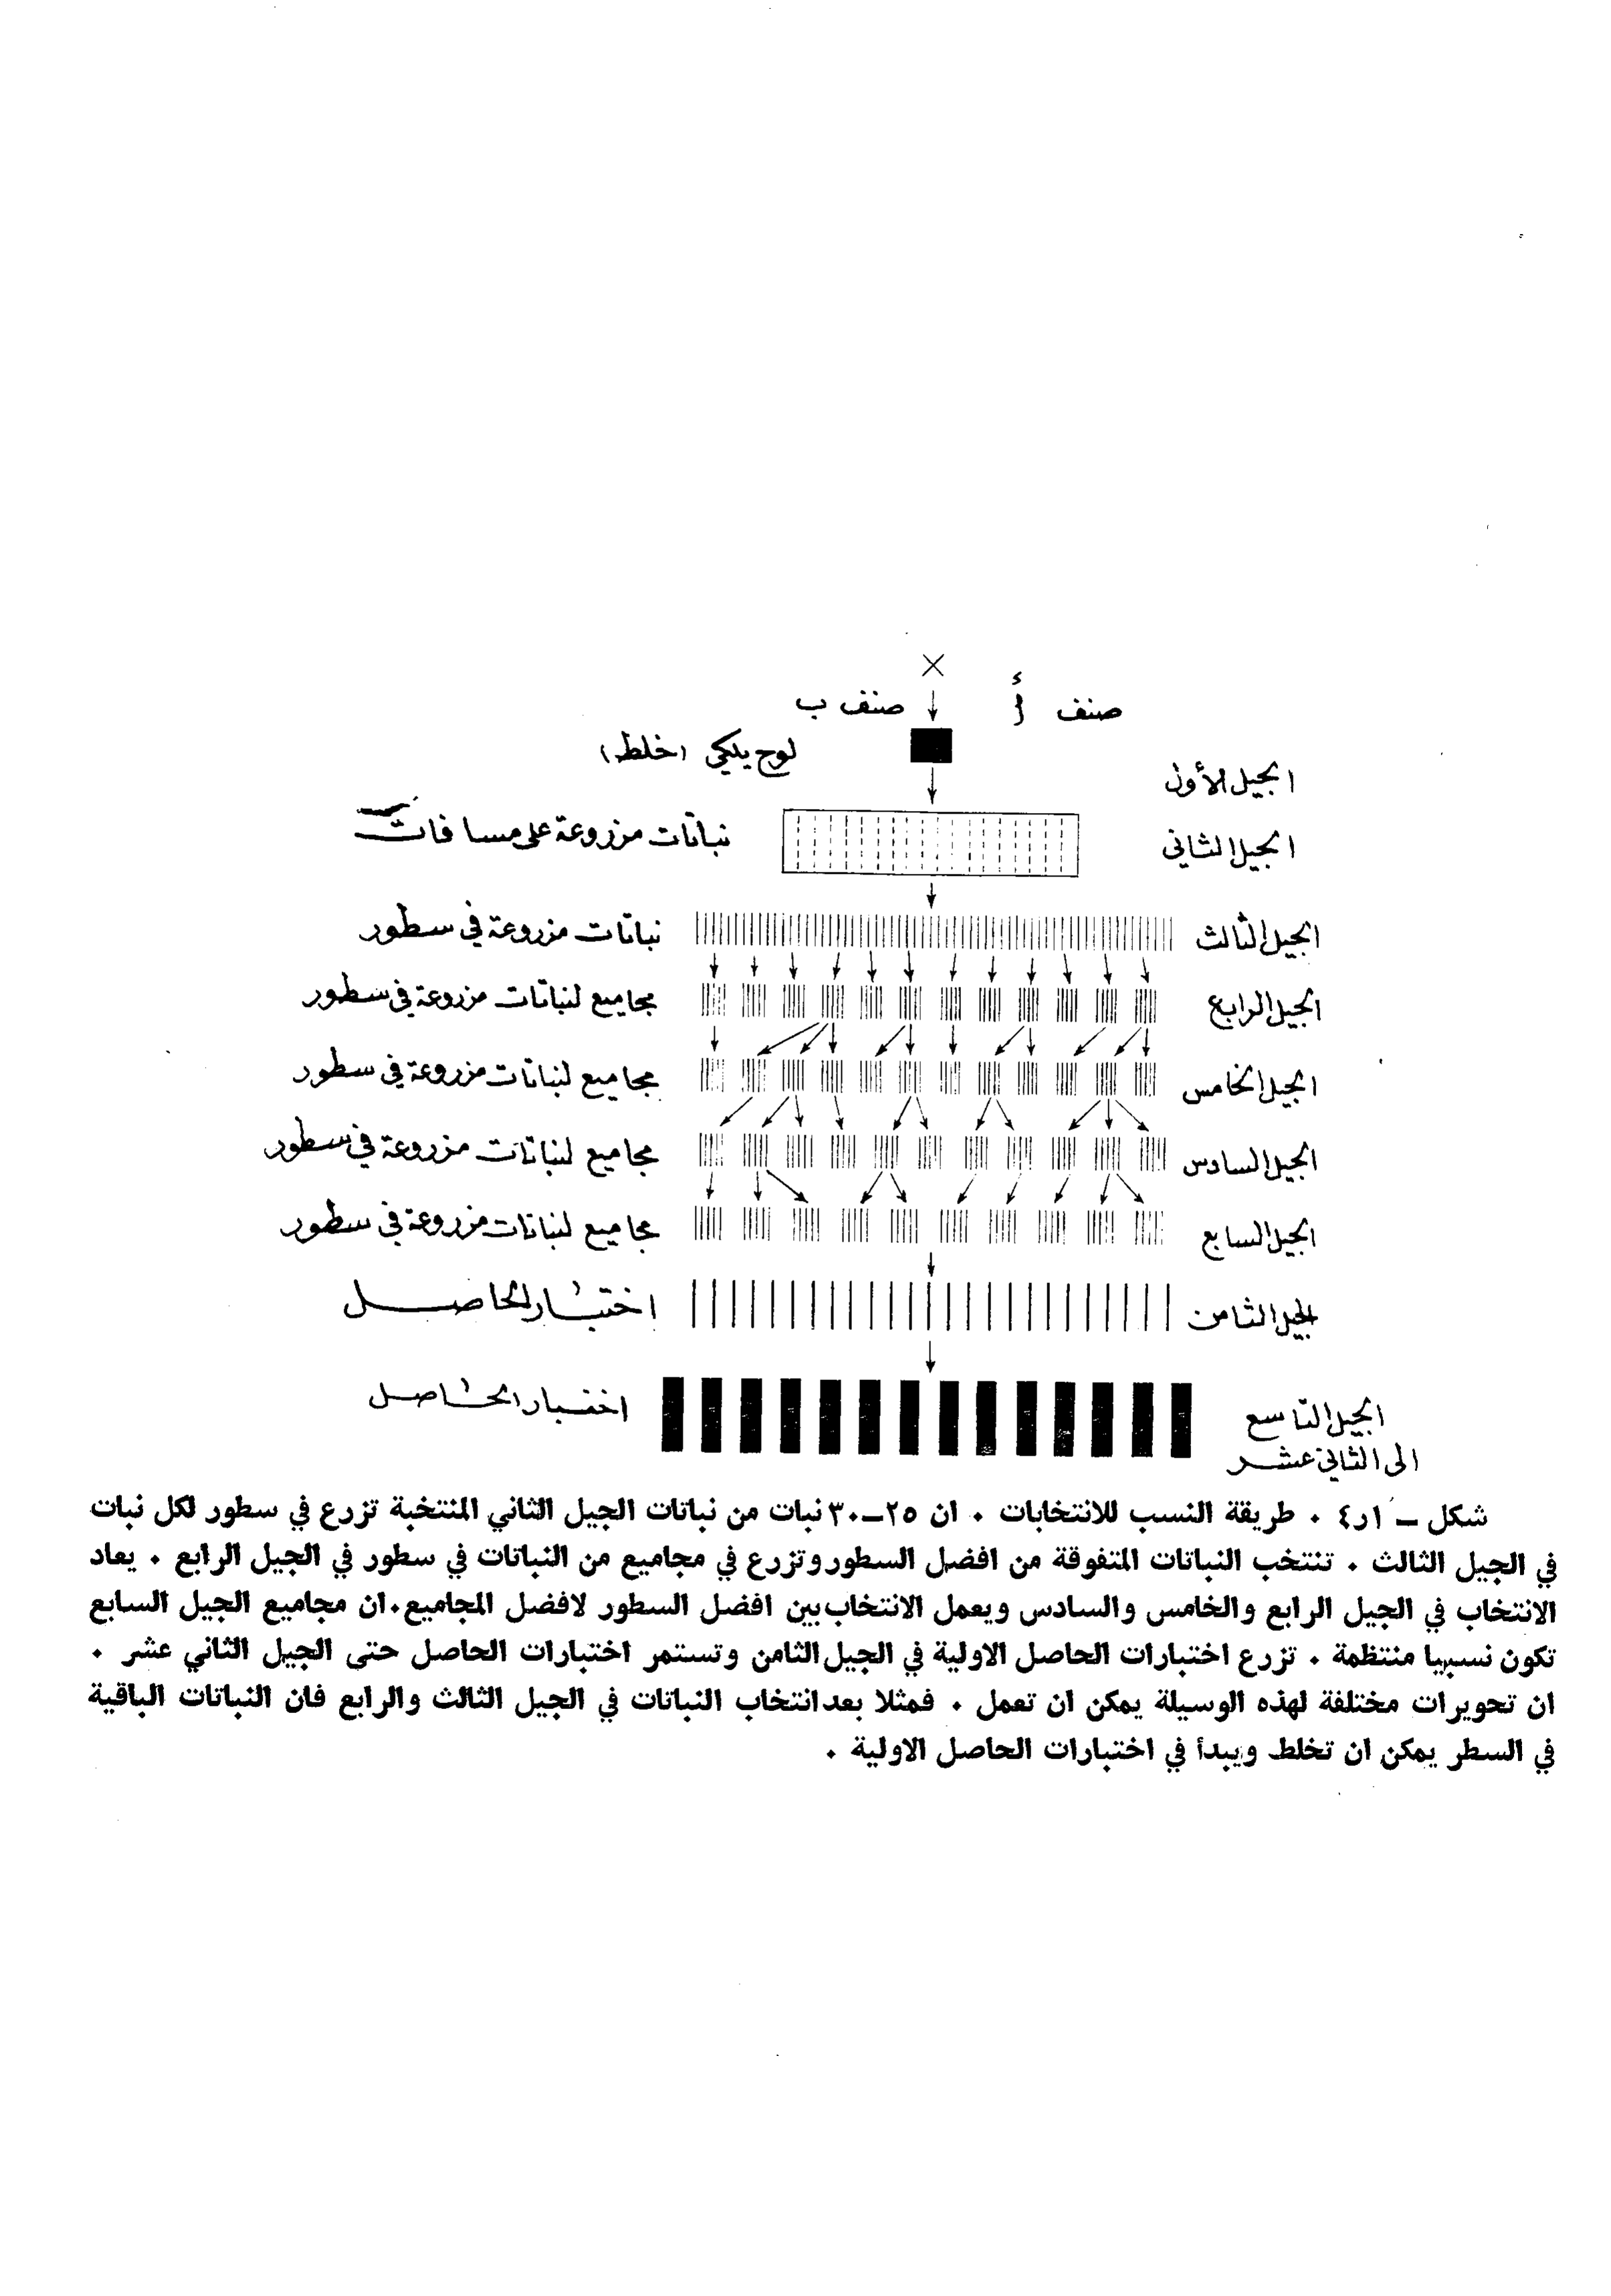 ×
صنف أ صنف ب
لوح يلكي (خلط)
الجيل الأول
الجيل الثاني نباتات مزروعة على مسافات
الجيل الثالث نباتات مزروعة في سطور
الجيل الرابع مجاميع لنباتات مزروعة في سطور
الجيل الخامس مجاميع لنباتات مزروعة في سطور
الجيل السادس مجاميع لنباتات مزروعة في سطور
الجيل السابع مجاميع لنباتات مزروعة في سطور
الجيل الثامن اختبار الحاصل
الجيل التاسع اختبار الحاصل
الى الثاني عشر
شكل – ١ر٤ . طريقة النسب للانتخابات . ان ٢٥–٣٠ نبات من نباتات الجيل الثاني المنتخبة تزرع في سطور لكل نبات
في الجيل الثالث . تنتخب النباتات المتفوقة من افضل السطور وتزرع في مجاميع من النباتات في سطور في الجيل الرابع . يعاد
الانتخاب في الجيل الرابع والخامس والسادس ويعمل الانتخاب بين افضل السطور لافضل المجاميع . ان مجاميع الجيل السابع
تكون نسبيا منتظمة . تزرع اختبارات الحاصل الاولية في الجيل الثامن وتستمر اختبارات الحاصل حتى الجيل الثاني عشر .
ان تحويرات مختلفة لهذه الوسيلة يمكن ان تعمل . فمثلا بعد انتخاب النباتات في الجيل الثالث والرابع فان النباتات الباقية
في السطر يمكن ان تخلط ويبدأ في اختبارات الحاصل الاولية .